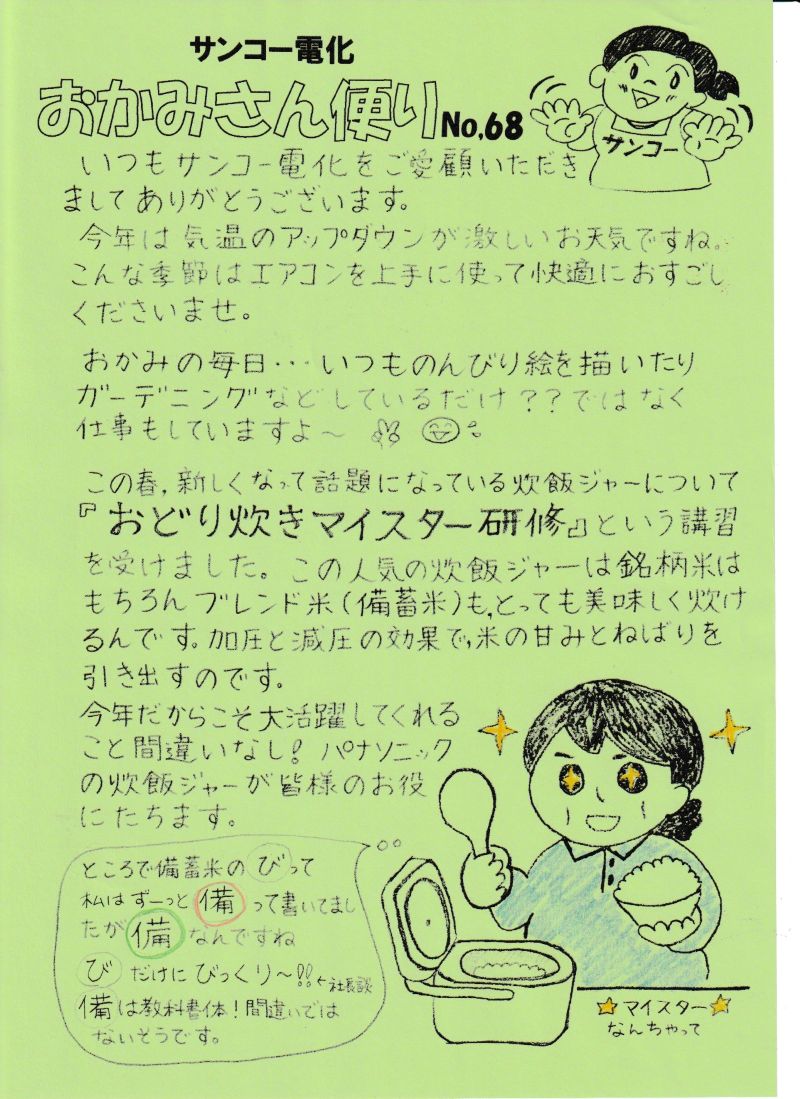 サンコー電化
おかみさん便り No.68
サンコー
いつもサンコー電化をご愛顧いただき
ましてありがとうございます。
今年は気温のアップダウンが激しいお天気ですね。
こんな季節はエアコンを上手に使って快適におすごし
くださいませ。
おかみの毎日・・・いつものんびり絵を描いたり
ガーデニングなどしているだけ??ではなく
仕事もしていますよ～
この春,新しくなって話題になっている炊飯ジャーについて
『おどり炊きマイスター研修』という講習
を受けました。この人気の炊飯ジャーは銘柄米は
もちろんブレンド米(備蓄米)も,とっても美味しく炊け
るんです。加圧と減圧の効果で,米の甘みとねばりを
引き出すのです。
今年だからこそ大活躍してくれる
こと間違いなし! パナソニック
の炊飯ジャーが皆様のお役
にたちます。
ところで備蓄米のびって
私はずーっと備って書いてまし
たが備なんですね
びだけにびっくり～!!←社長談
備は教科書体!間違いでは
ないそうです。
☆マイスター☆
なんちゃって